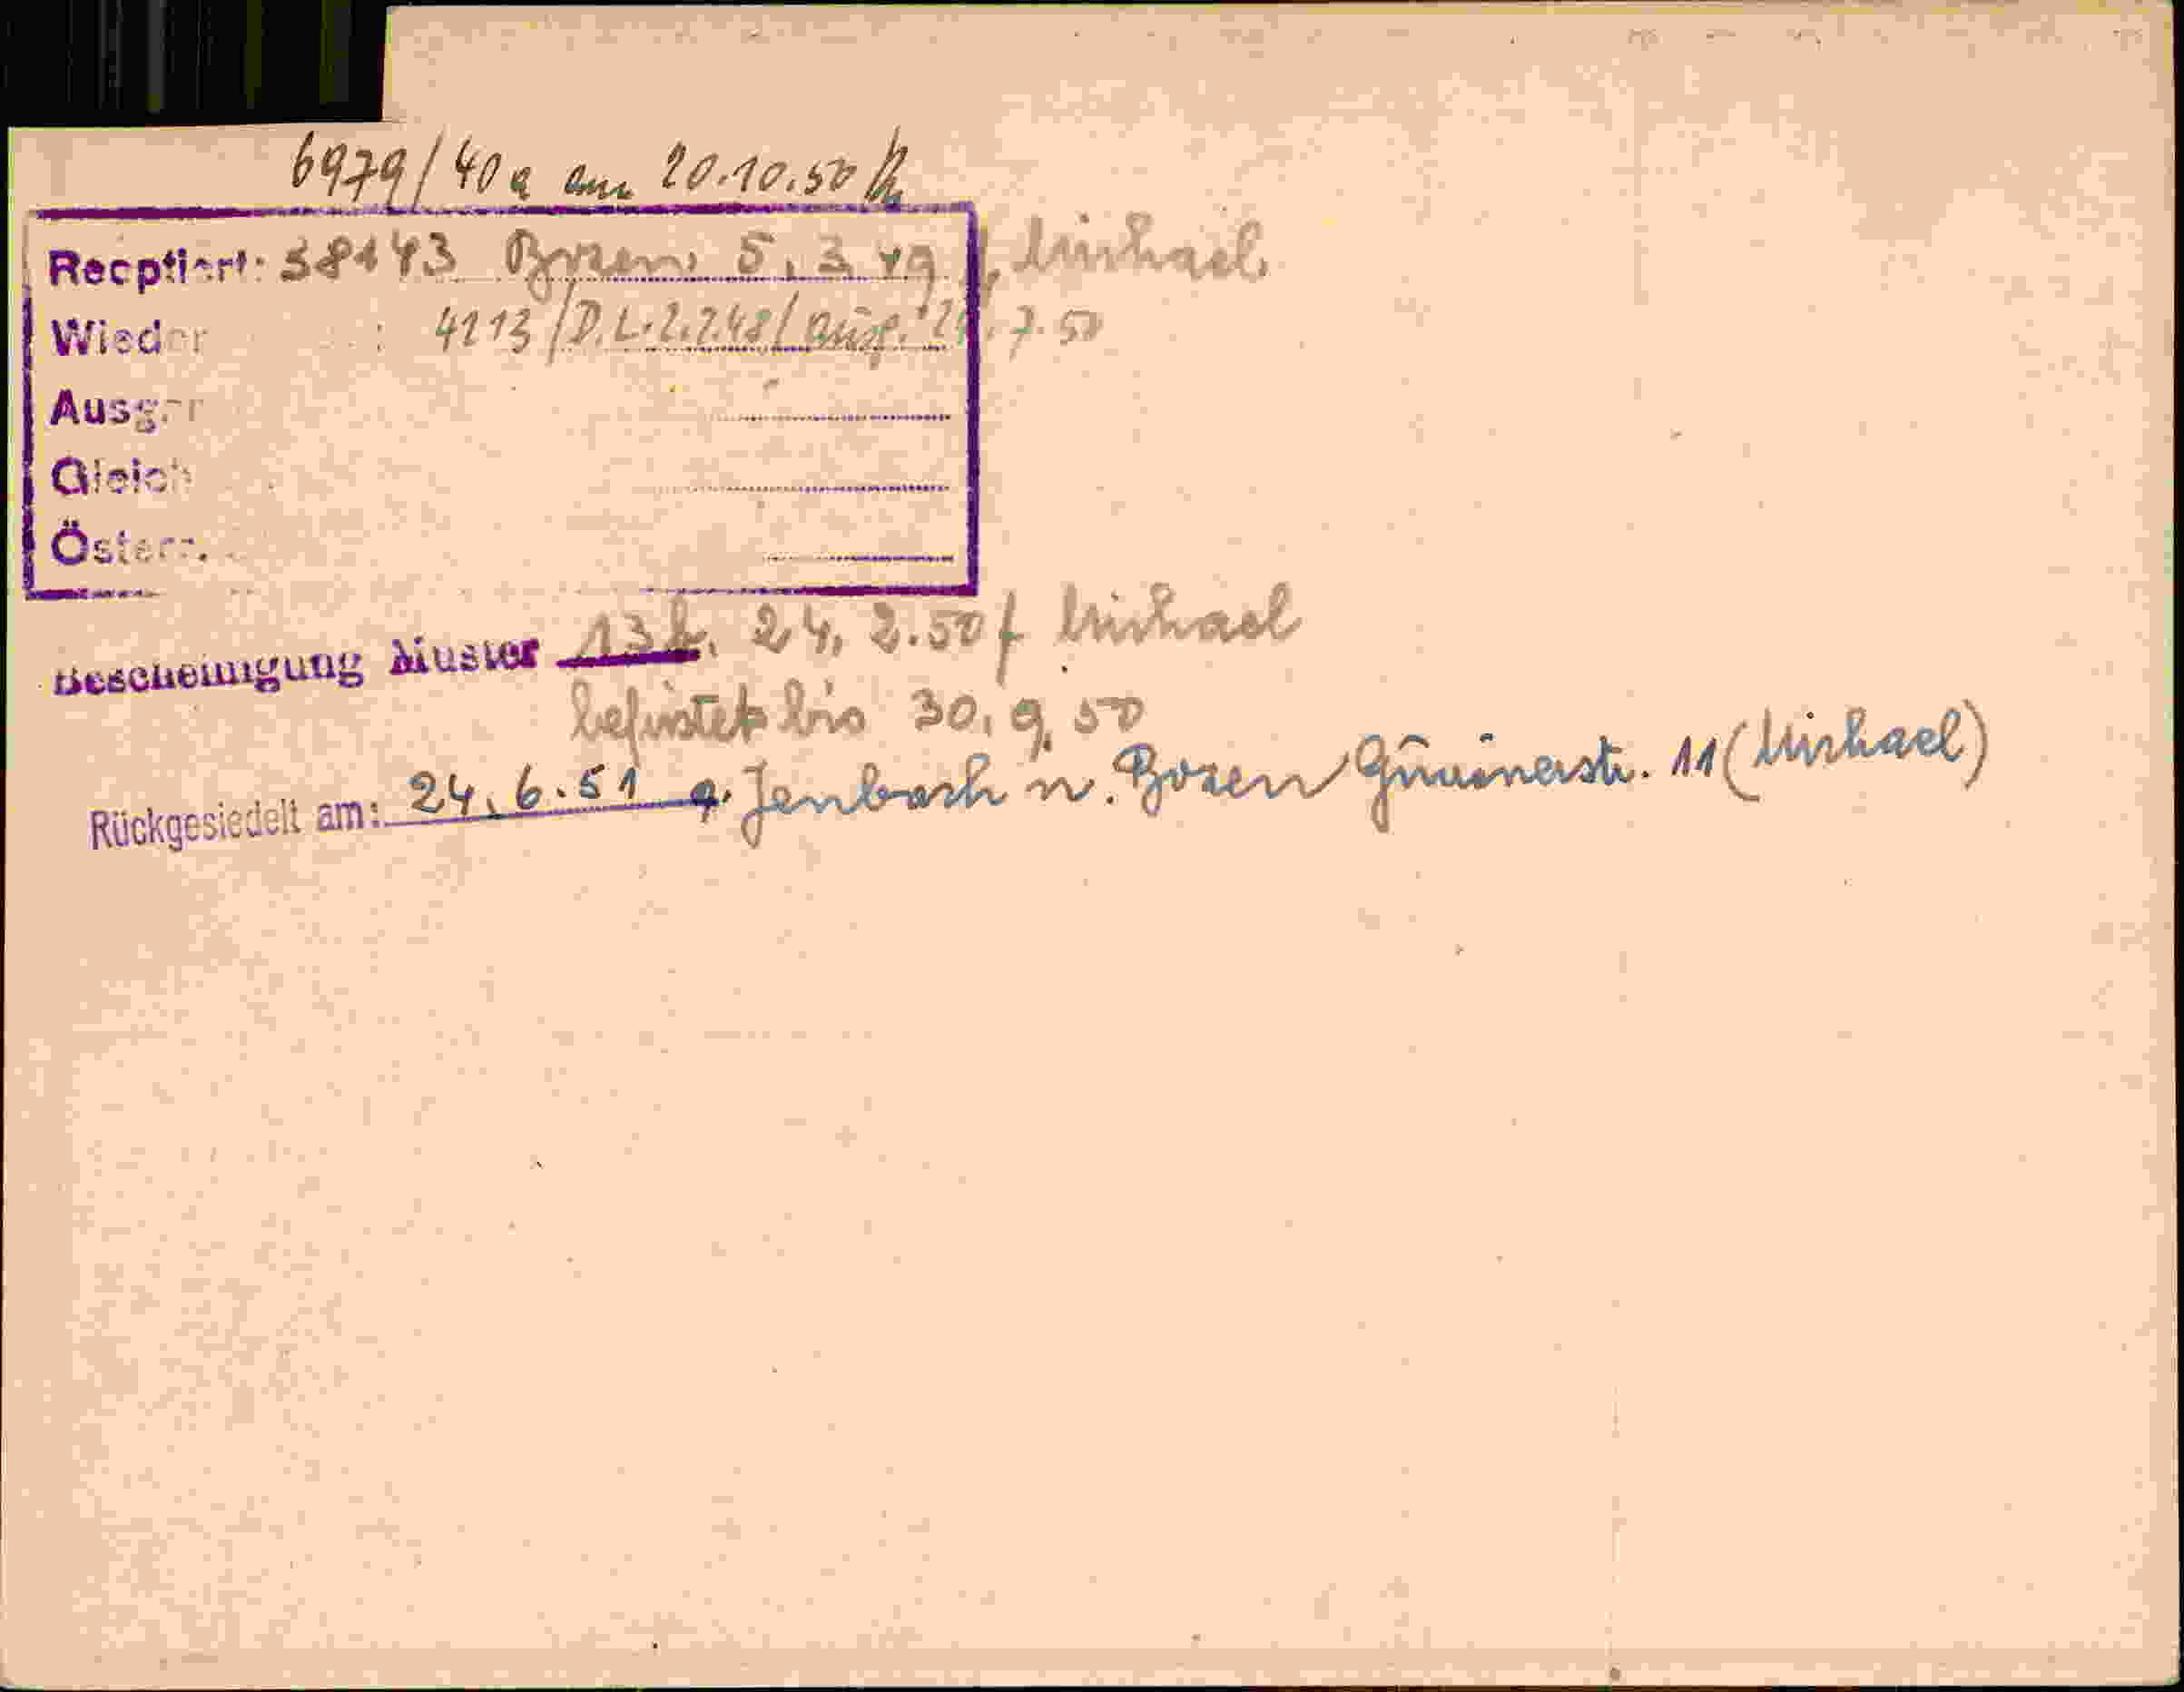 6979/40a am 20.10.50
Recptiert: 38143 Bozen 5.3.49 f. Michael
Wieder : 4213/D.L.2.7.48/ausg. 7.50
Ausger
Gleich
Österr.
Bescheinigung Muster 13b, 24.2.50 f Michael
befristet bis 30.9.50
Rückgesiedelt am: 24.6.51 v. Jenbach n. Bozen 11 (Michael)